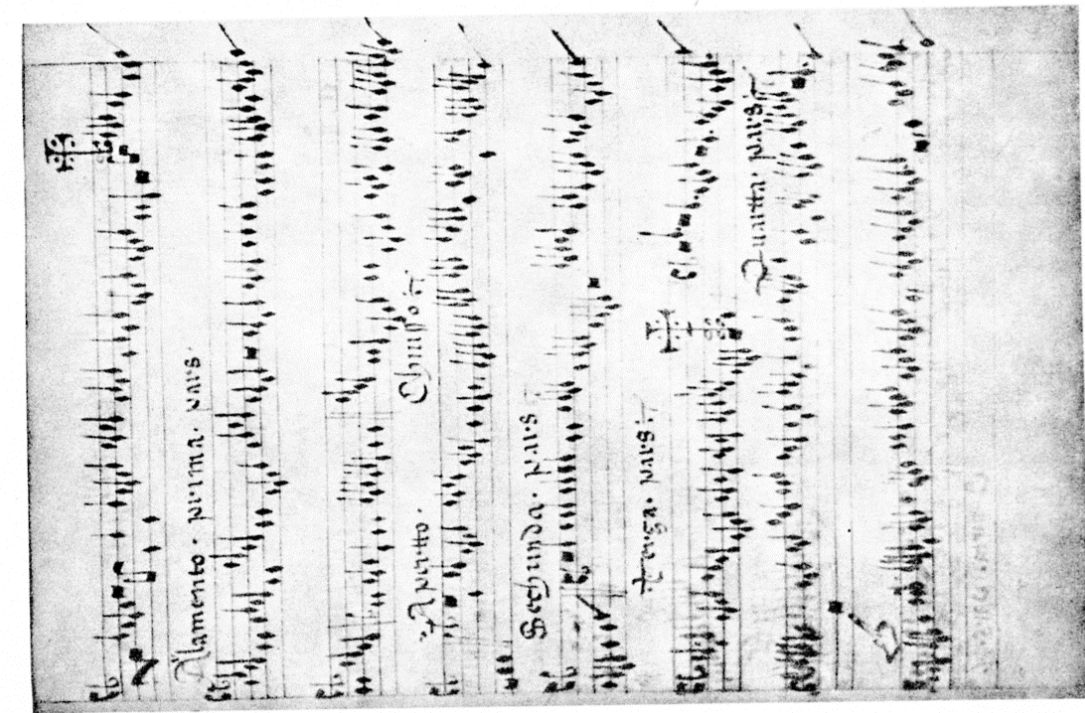 Plamento. prima. pars.
Apertto. Chiuso.
Sechunda. pars
terza. pars.
Quartta. pars.